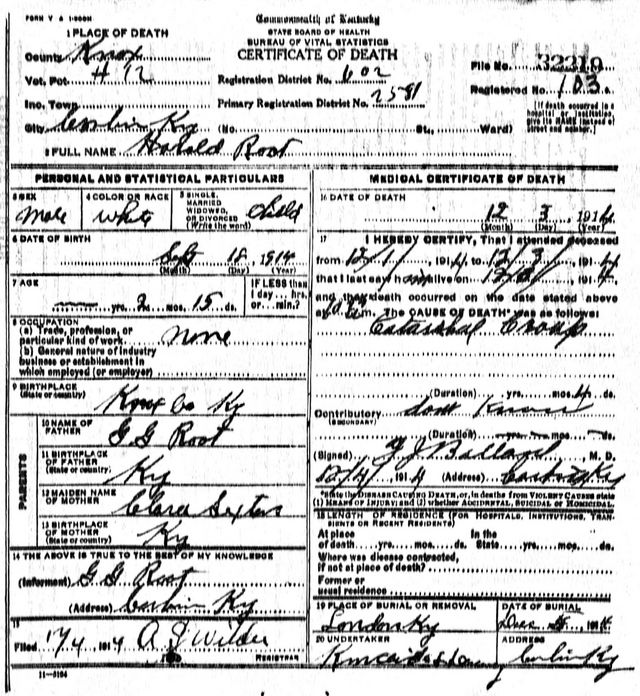 FORM V S 1-500M
Commonwealth of Kentucky
STATE BOARD OF HEALTH
BUREAU OF VITAL STATISTICS
CERTIFICATE OF DEATH
1 PLACE OF DEATH
County Knox
Vot. Pct. # 12
Registration District No. 602
File No. 32219
Inc. Town
Primary Registration District No. 2581
Registered No. 103
City Corbin Ky (No. St., Ward)
[If death occurred in a hospital or institution, give its NAME instead of street and number.]
2 FULL NAME Harold Root
PERSONAL AND STATISTICAL PARTICULARS
3 SEX Male
4 COLOR OR RACE White
5 SINGLE, MARRIED WIDOWED, OR DIVORCED (Write the word) Child
6 DATE OF BIRTH
Sept 18, 1914
(Month) (Day) (Year)
7 AGE
yrs. 2 mos. 15 ds.
IF LESS than 1 day... hrs. or... min.?
8 OCCUPATION
(a) Trade, profession, or particular kind of work. none
(b) General nature of industry business or establishment in which employed (or employer)
9 BIRTHPLACE (State or country) Knox Co Ky
PARENTS
10 NAME OF FATHER G G Root
11 BIRTHPLACE OF FATHER (State or country) Ky
12 MAIDEN NAME OF MOTHER Clara
13 BIRTHPLACE OF MOTHER (State or country) Ky
14 THE ABOVE IS TRUE TO THE BEST OF MY KNOWLEDGE
(Informant) G G Root
(Address) Corbin Ky
15
Filed 12/4 1914 A J Wilder
REGISTRAR
11-3184
MEDICAL CERTIFICATE OF DEATH
16 DATE OF DEATH
12 3, 1914
(Month) (Day) (Year)
17 I HEREBY CERTIFY, That I attended deceased
from 12/1, 1914, to 12/3, 1914
that I last saw him alive on 12/3, 1914
and that death occurred on the date stated above
at m. The CAUSE OF DEATH* was as follows:
Catarrhal Croup
(Duration) yrs. mos. 4 ds.
Contributory (SECONDARY) dont know
(Duration) yrs. mos. ds.
(Signed) M. D.
12/4, 1914 (Address) Corbin Ky
*State the DISEASE CAUSING DEATH, or, in deaths from VIOLENT CAUSES state (1) MEANS OF INJURY and (2) whether ACCIDENTAL, SUICIDAL or HOMICIDAL.
18 LENGTH OF RESIDENCE (FOR HOSPITALS, INSTITUTIONS, TRANSIENTS OR RECENT RESIDENTS)
At place of death yrs. mos. ds. In the State yrs. mos. ds.
Where was disease contracted, if not at place of death?
Former or usual residence
19 PLACE OF BURIAL OR REMOVAL London Ky
DATE OF BURIAL Dec 1914
20 UNDERTAKER
ADDRESS Corbin Ky